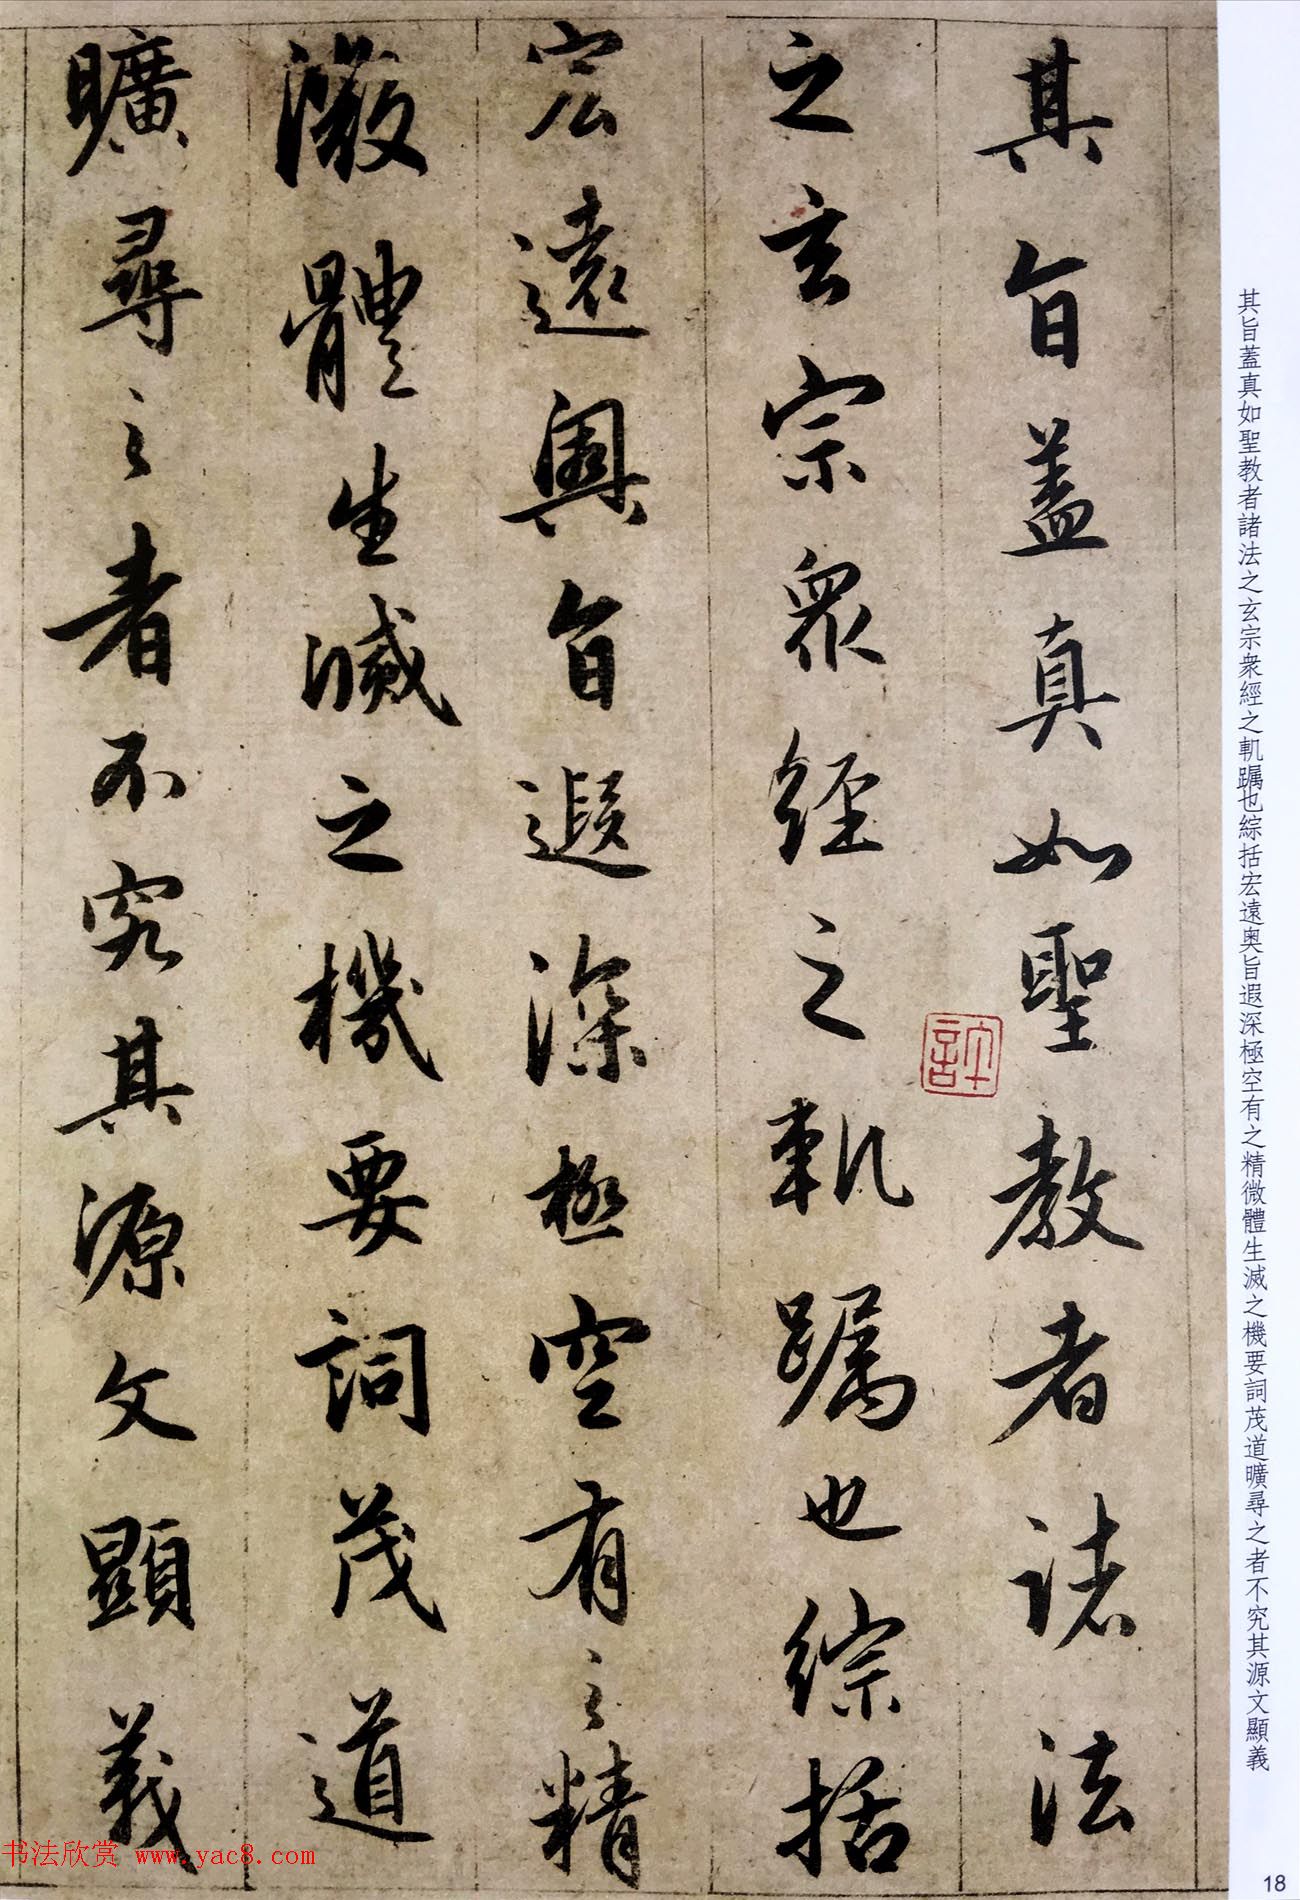 其旨蓋真如聖教者諸法
之玄宗衆經之軏躅也綜括
宏遠奧旨遐深極空有之精
微體生滅之機要詞茂道
曠尋之者不究其源文顯義
其旨蓋真如聖教者諸法之玄宗衆經之軏躅也綜括宏遠奧旨遐深極空有之精微體生滅之機要詞茂道曠尋之者不究其源文顯義
书法欣赏 www.yac8.com
18